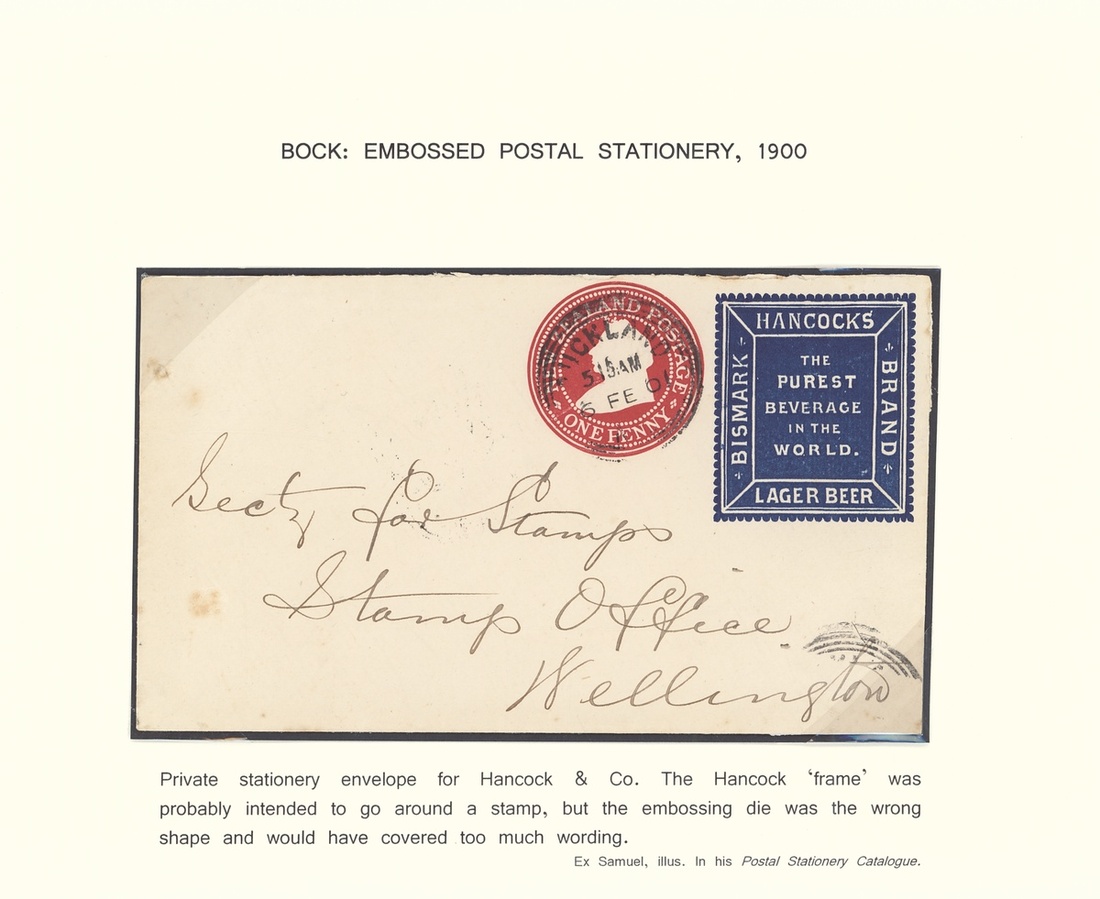 BOCK: EMBOSSED POSTAL STATIONERY, 1900
ZEALAND POSTAGE
ONE PENNY
AUCKLAND
5 15 AM
6 FE 01
HANCOCKS
BISMARK
THE
PUREST
BEVERAGE
IN THE
WORLD.
BRAND
LAGER BEER
Secty for Stamps
Stamp Office
Wellington
Private stationery envelope for Hancock & Co. The Hancock ‘frame’ was
probably intended to go around a stamp, but the embossing die was the wrong
shape and would have covered too much wording.
Ex Samuel, illus. In his Postal Stationery Catalogue.